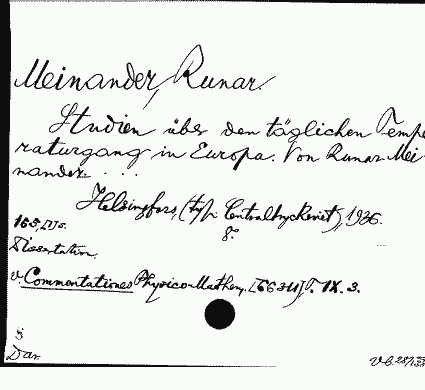 Meinander, Runar.
Studien über den täglichen Tempe
raturgang in Europa. Von Runar Mei-
nander. . . .
Helsingfors, (typ. Centraltryckeriet), 1936.
8°.
165, 
Dissertation.
v. Commentationes Physico-Mathem. T. IX. 3.
Dar.